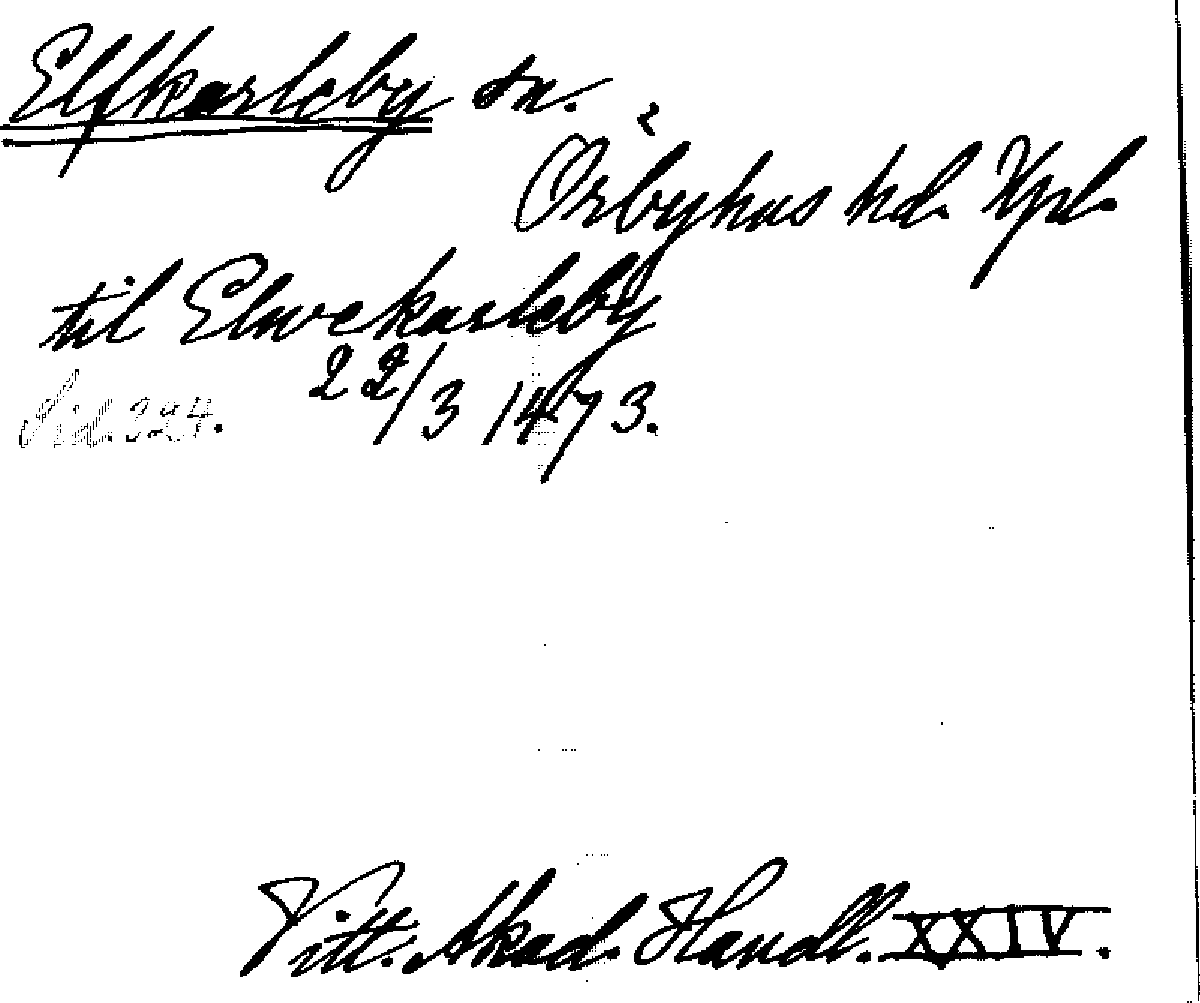 Elfkarleby sn.
Örbyhus hd. Upl.
til Elwekarleby
22/3 1473.
Sid. 324.
Vitt. Akad. Handl. XXIV.